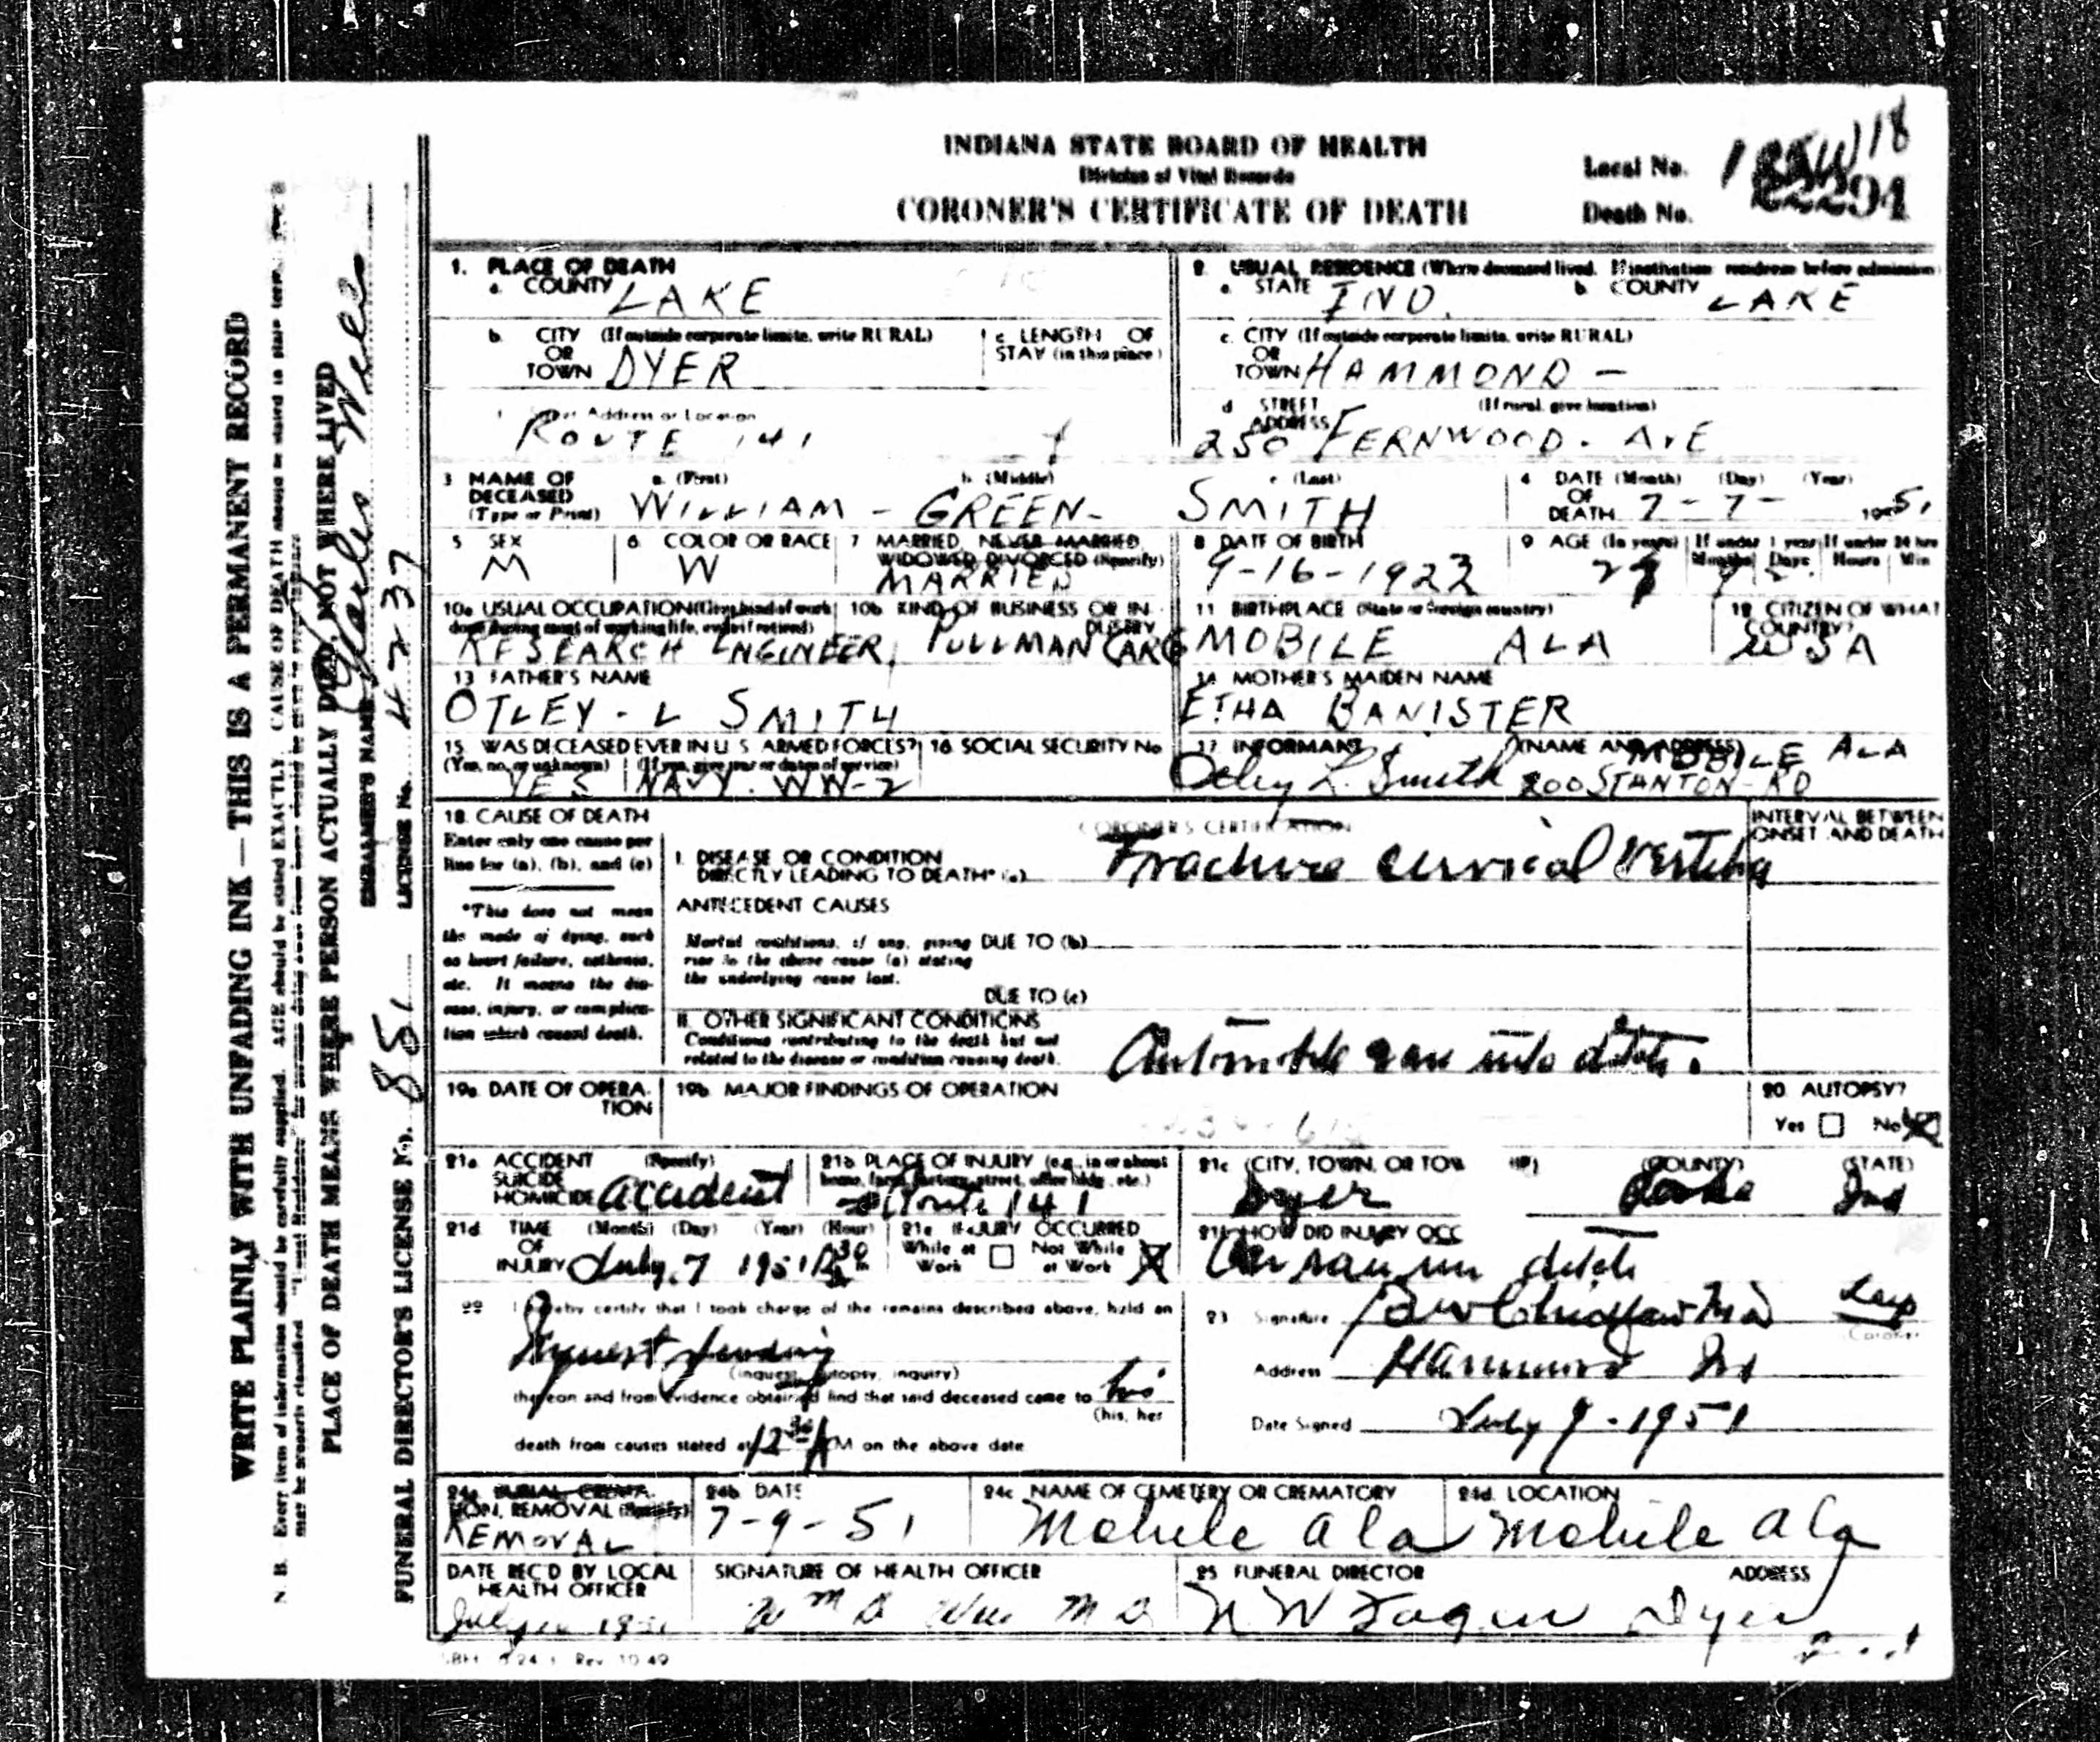 INDIANA STATE BOARD OF HEALTH
Division of Vital Records
CORONER'S CERTIFICATE OF DEATH
Local No.
Death No. 22291
1. PLACE OF DEATH
a. COUNTY LAKE
b. CITY (If outside corporate limits, write RURAL) OR TOWN DYER
c. LENGTH OF STAY (in this place)
Street Address or Location
ROUTE 141
2. USUAL RESIDENCE (Where deceased lived. If institution: residence before admission)
a. STATE IND. b. COUNTY LAKE
c. CITY (If outside corporate limits, write RURAL) OR TOWN HAMMOND -
d. STREET ADDRESS (If rural, give location)
250 FERNWOOD. AVE
3 NAME OF DECEASED (Type or Print) a. (First) b. (Middle) c. (Last)
WILLIAM - GREEN- SMITH
4 DATE OF DEATH (Month) (Day) (Year) 7-7- 1951
5 SEX M
6 COLOR OR RACE W
7 MARRIED, NEVER MARRIED, WIDOWED, DIVORCED (Specify)
MARRIED
8 DATE OF BIRTH
9 AGE (In years) If under 1 year Months Days If under 24 hrs Hours Min
9-16-1922
10a USUAL OCCUPATION (Give kind of work done during most of working life, even if retired)
RESEARCH ENGINEER
10b KIND OF BUSINESS OR INDUSTRY
PULLMAN CARS
11 BIRTHPLACE (State or foreign country)
MOBILE ALA
12 CITIZEN OF WHAT COUNTRY?
USA
13 FATHER'S NAME
OTLEY - L SMITH
14 MOTHER'S MAIDEN NAME
ETHA BANISTER
15 WAS DECEASED EVER IN U. S. ARMED FORCES? (Yes, no, or unknown) (If yes, give war or dates of service)
YES NAVY. WW-2
16 SOCIAL SECURITY No
17 INFORMANT (NAME AND ADDRESS) MOBILE ALA
Otley L. Smith 200 STANTON-RD
18. CAUSE OF DEATH
Enter only one cause per line for (a), (b), and (c)
*This does not mean the mode of dying, such as heart failure, asthenia, etc. It means the disease, injury, or complication which caused death.
CORONER'S CERTIFICATION
INTERVAL BETWEEN ONSET AND DEATH
I. DISEASE OR CONDITION DIRECTLY LEADING TO DEATH* (a) Fracture cervical vertebra
ANTECEDENT CAUSES
Morbid conditions, if any, giving rise to the above cause (a) stating the underlying cause last.
DUE TO (b)
DUE TO (c)
II. OTHER SIGNIFICANT CONDITIONS
Conditions contributing to the death but not related to the disease or condition causing death.
Automobile ran into ditch.
19a. DATE OF OPERATION
19b. MAJOR FINDINGS OF OPERATION
20. AUTOPSY?
Yes No
21a ACCIDENT SUICIDE HOMICIDE (Specify) accident
21b PLACE OF INJURY (e.g., in or about home, farm, factory, street, office bldg., etc.)
Route 141
21c (CITY, TOWN, OR TOWNSHIP) (COUNTY) (STATE)
Dyer Lake Ind
21d TIME OF INJURY (Month) (Day) (Year) (Hour)
July 7 1951
21e INJURY OCCURRED
While at Work Not While at Work
21f HOW DID INJURY OCC
Car ran in ditch
22 I hereby certify that I took charge of the remains described above, held an
Inquest pending
(inquest, autopsy, inquiry)
thereon and from evidence obtained find that said deceased came to his
(his, her
death from causes stated at 12 30 A M on the above date
23 Signature
Coroner
Address Hammond Ind
Date Signed July 9 - 1951
24a BURIAL, CREMATION, REMOVAL (Specify)
REMOVAL
24b DATE
7-9-51
24c NAME OF CEMETERY OR CREMATORY
Mobile ala
24d. LOCATION
Mobile ala
DATE REC'D BY LOCAL HEALTH OFFICER
SIGNATURE OF HEALTH OFFICER
25 FUNERAL DIRECTOR ADDRESS
Dyer
WRITE PLAINLY WITH UNFADING INK — THIS IS A PERMANENT RECORD
N. B. Every item of information should be carefully supplied. AGE should be stated EXACTLY. CAUSE OF DEATH should be stated in plain terms,
PLACE OF DEATH MEANS WHERE PERSON ACTUALLY DIED, NOT WHERE LIVED
EMBALMER'S NAME
LICENSE No. 4237
FUNERAL DIRECTOR'S LICENSE No. 881